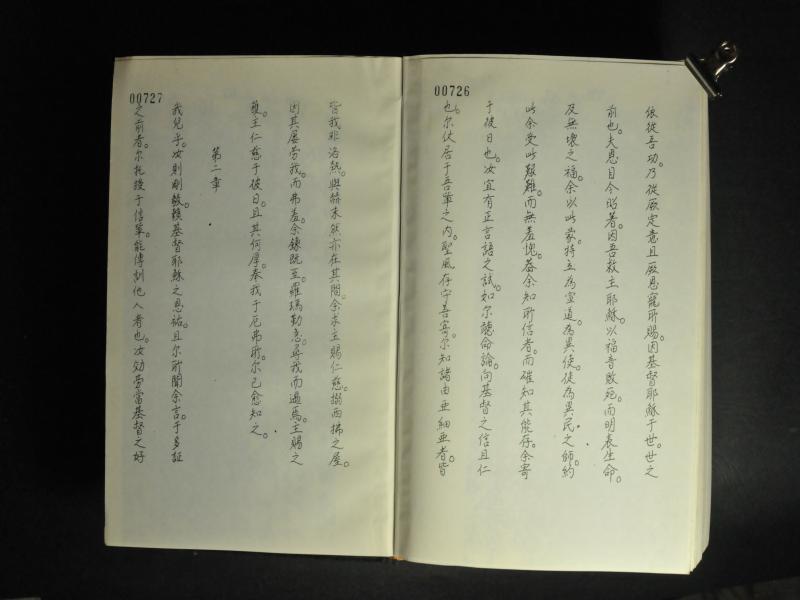 00726
依從吾功。乃從厥定意且厥恩寵所賜。因基督耶穌于世。世之
前也。夫恩目今昭著。因吾救主耶穌。以福音敗死。而明表生命。
及無壞之福。余以此蒙持立為宣道。為異使。徒為異民之師。約
此余受此艱難。而無羞愧。葢余知所信者。而確知其能存。余寄
于彼日也。汝宜有正言語之試。如尔聽命論。向基督之信且仁
也。尔伏居于吾輩之內。聖風存守善寄。尔知諸由亜細亜者。皆
00727
皆我。非洛熱。與赫末然亦在其間。余求主賜仁慈。撾西拂之屋。
因其屢勞我。而弗羞。余鍊既至羅瑪勤意。尋我而遇焉。主賜之
獲主仁慈于彼日。且其何厚奉我于厄弗所。尔已愈知之。
第二章
我兒乎。汝則剛毅。賴基督耶穌之恩祐。且尔所聞余言。于多証
之前者。尔托授于信輩。能傳訓他人者也。汝効勞當基督之好